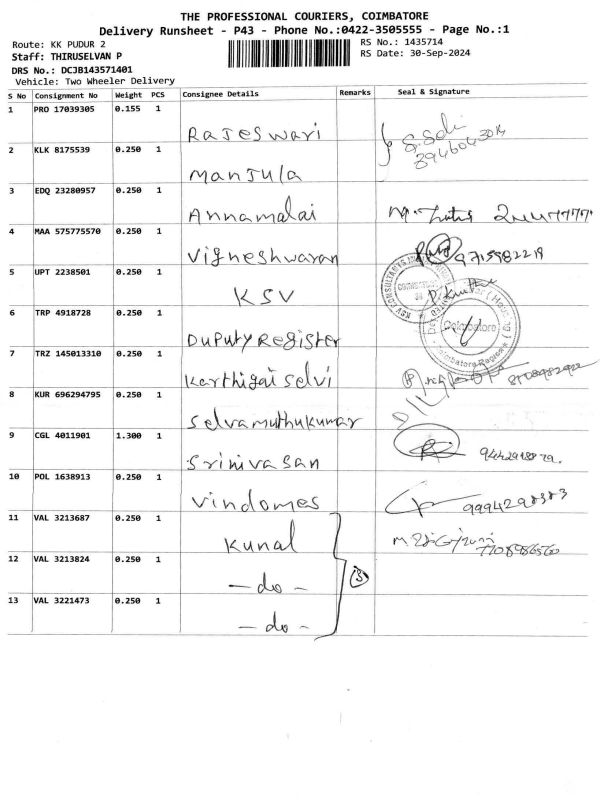 THE PROFESSIONAL COURIERS, COIMBATORE
Delivery Runsheet - P43 - Phone No.:0422-3505555 - Page No.:1
Route: KK PUDUR 2
RS No.: 1435714
Staff: THIRUSELVAN P
RS Date: 30-Sep-2024
DRS No.: DCJB143571401
Vehicle: Two Wheeler Delivery
S No Consignment No Weight PCS Consignee Details Remarks Seal & Signature
1 PRO 17039305 0.155 1 Rajeswari
2 KLK 8175539 0.250 1 Manjula
3 EDQ 23280957 0.250 1 Annamalai
4 MAA 575775570 0.250 1 Vigneshwaran 9715982219
5 UPT 2238501 0.250 1 KSV
6 TRP 4918728 0.250 1 Duputy Register Coimbatore
7 TRZ 145013310 0.250 1 Karthigai Selvi
8 KUR 696294795 0.250 1 Selvamuthukumar
9 CGL 4011901 1.300 1 Srinivasan
10 POL 1638913 0.250 1 Vindomes
11 VAL 3213687 0.250 1 Kunal
12 VAL 3213824 0.250 1 - do - 3
13 VAL 3221473 0.250 1 - do -